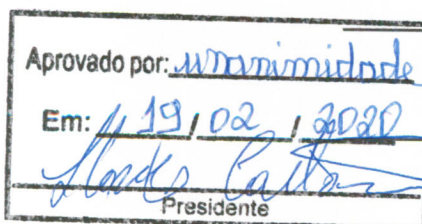 Aprovado por: unanimidade
Em: 19 / 02 / 2020
Presidente